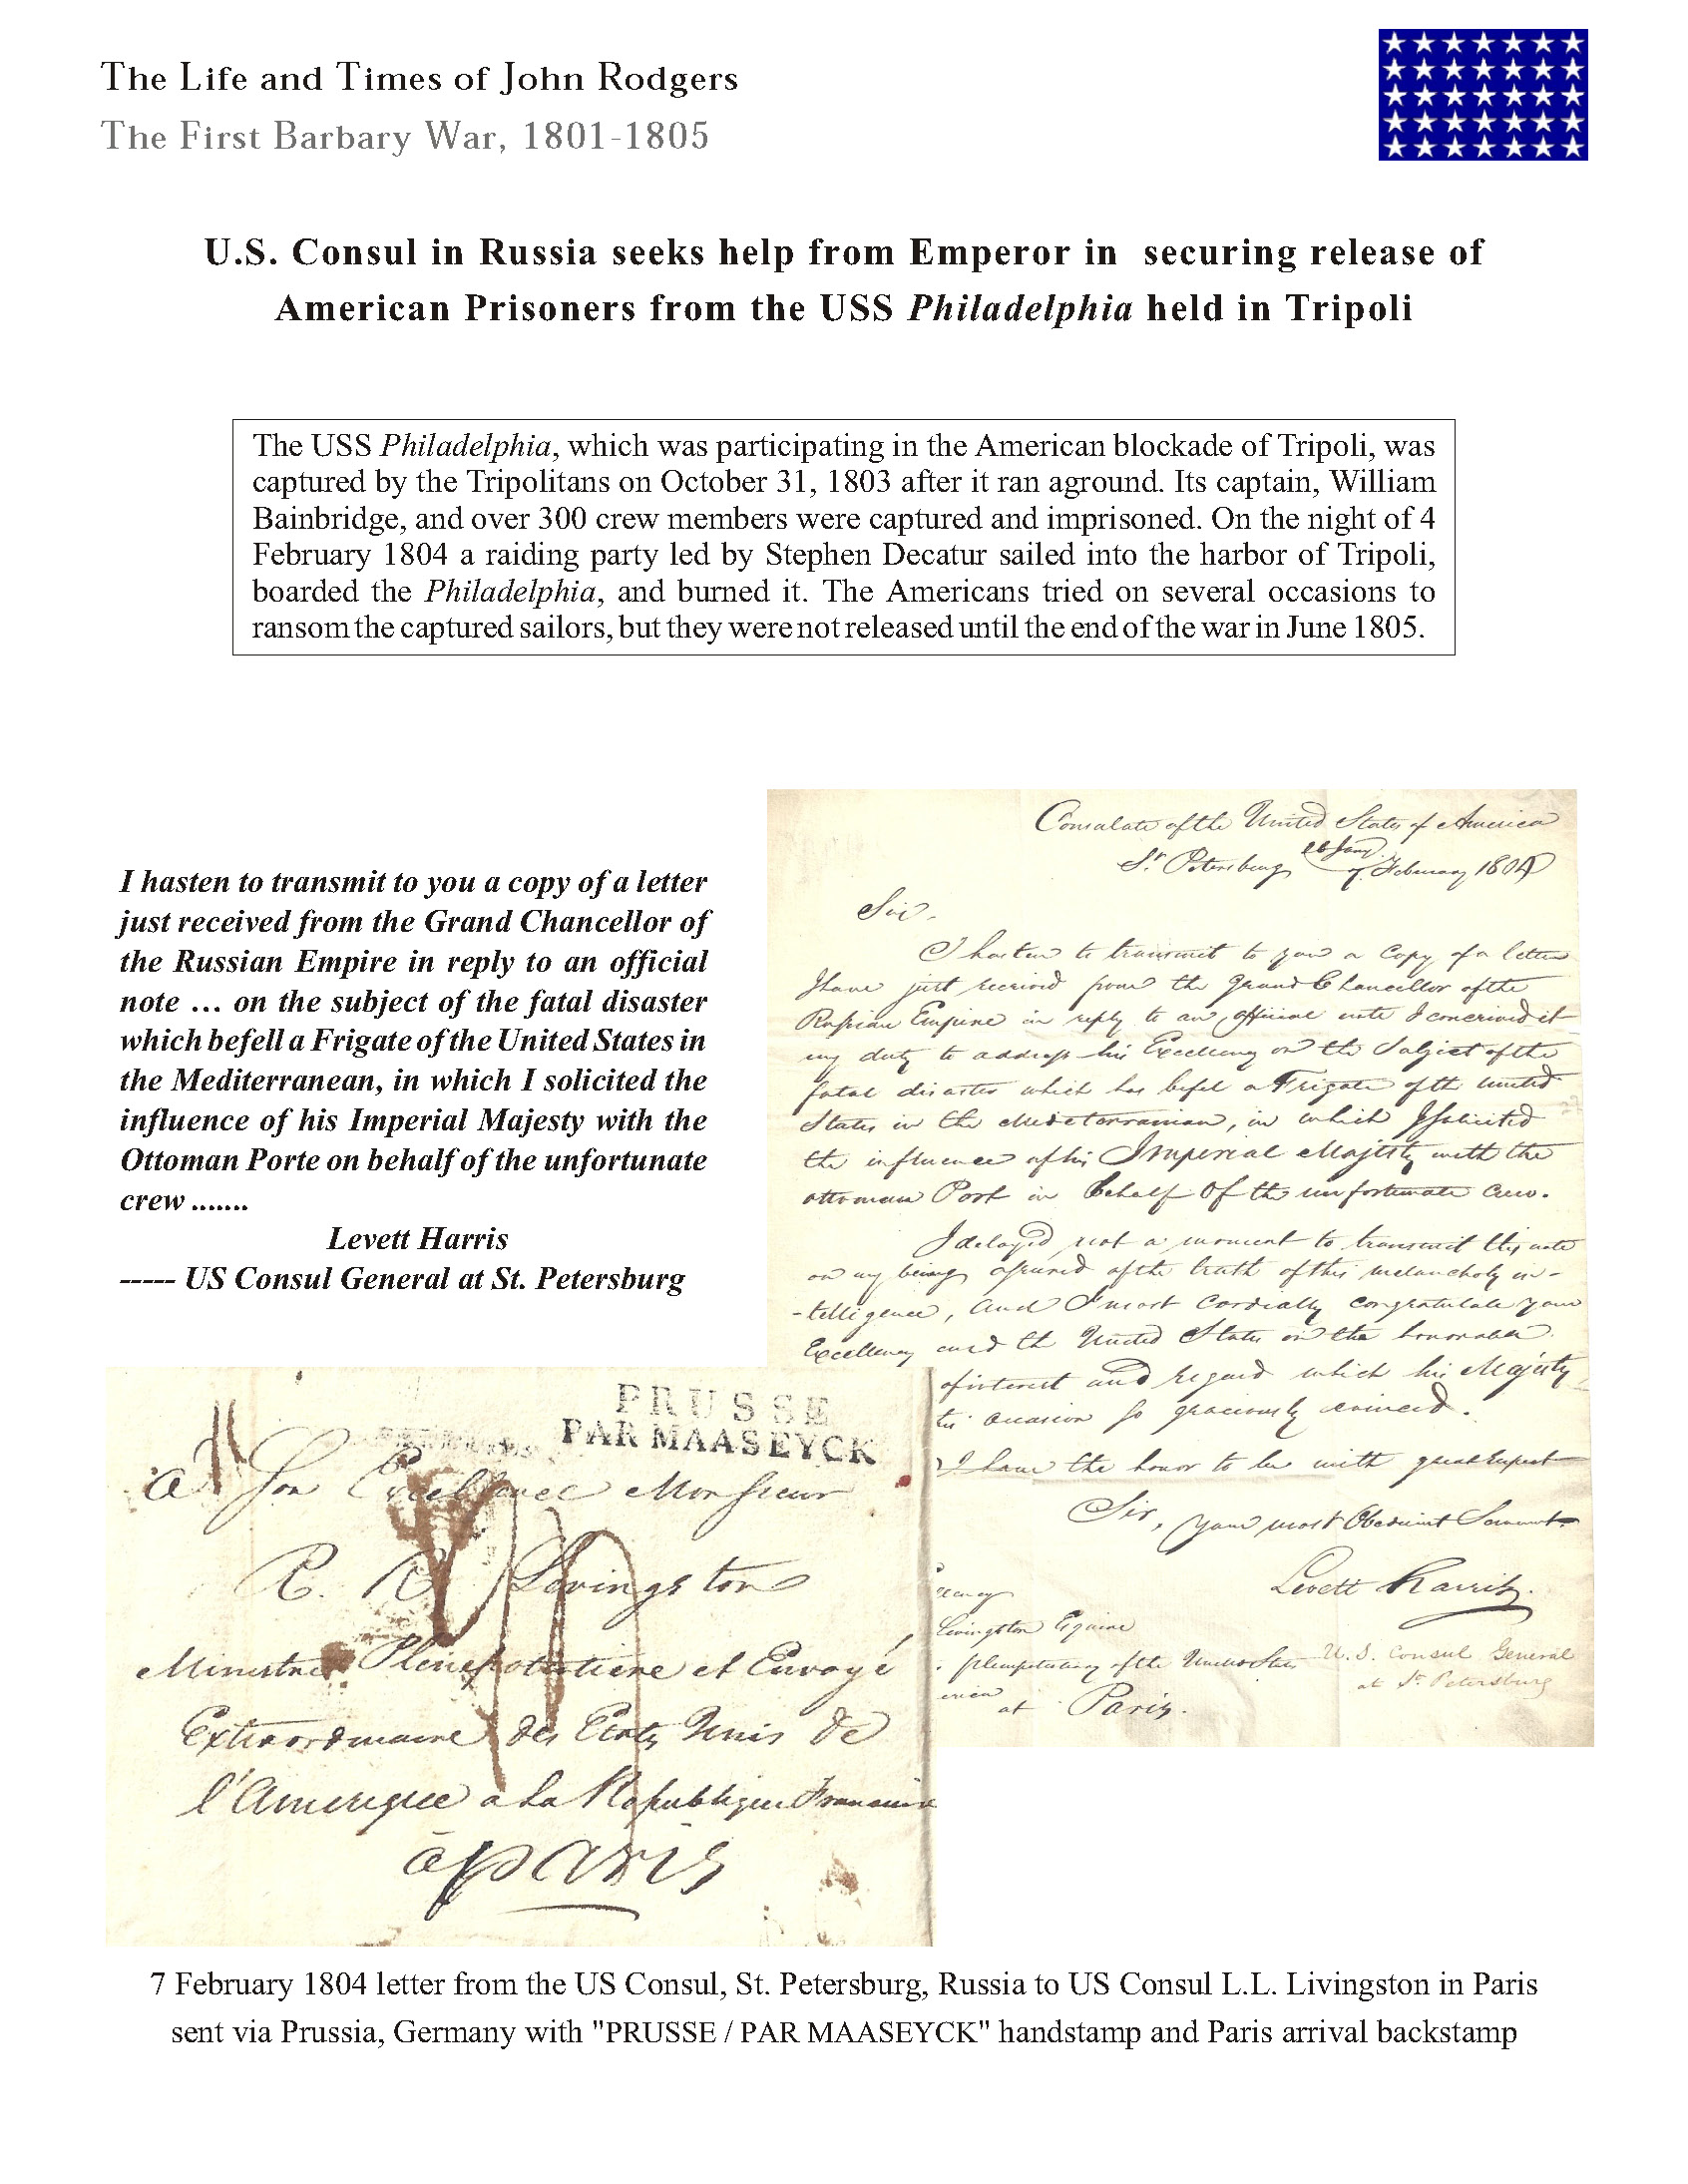 The Life and Times of John Rodgers
The First Barbary War, 1801-1805
U.S. Consul in Russia seeks help from Emperor in securing release of
American Prisoners from the USS Philadelphia held in Tripoli
The USS Philadelphia, which was participating in the American blockade of Tripoli, was
captured by the Tripolitans on October 31, 1803 after it ran aground. Its captain, William
Bainbridge, and over 300 crew members were captured and imprisoned. On the night of 4
February 1804 a raiding party led by Stephen Decatur sailed into the harbor of Tripoli,
boarded the Philadelphia, and burned it. The Americans tried on several occasions to
ransom the captured sailors, but they were not released until the end of the war in June 1805.
I hasten to transmit to you a copy of a letter
just received from the Grand Chancellor of
the Russian Empire in reply to an official
note … on the subject of the fatal disaster
which befell a Frigate of the United States in
the Mediterranean, in which I solicited the
influence of his Imperial Majesty with the
Ottoman Porte on behalf of the unfortunate
crew .......
Levett Harris
----- US Consul General at St. Petersburg
Consulate of the United States of America
St. Petersburg 26 Jany. 7 February 1804
Sir.
I hasten to transmit to you a Copy of a letter
I have just received from the Grand Chancellor of the
Russian Empire in reply to an official note I conceived it
my duty to address his Excellency on the Subject of the
fatal disaster which has befel a Frigate of the United
States in the Mediterranean, in which I solicited
the influence of his Imperial Majesty with the
ottoman Port in behalf of the unfortunate crew.
I delayed not a moment to transmit this note
on my being assured of the truth of this melancholy in-
-telligence, and I most cordially congratulate your
Excellency and the United States on the honorable
of interest and regard which his Majesty
this occasion so graciously evinced.
I have the honor to be with great respect
Sir, your most Obedient Servant
Levett Harris.
U.S. Consul General
at St. Petersburg
Livingston Esquire
plenipotentiary of the United States
at Paris.
PRUSSE
PAR MAASEYCK
a Son Excellence Monsieur
R. R. Livingston
Ministre Plenipotentiaire et Envoyé
Extraordinaire des Etats Unis de
l'Amerique a la Republique Francaise
à Paris
7 February 1804 letter from the US Consul, St. Petersburg, Russia to US Consul L.L. Livingston in Paris
sent via Prussia, Germany with "PRUSSE / PAR MAASEYCK" handstamp and Paris arrival backstamp